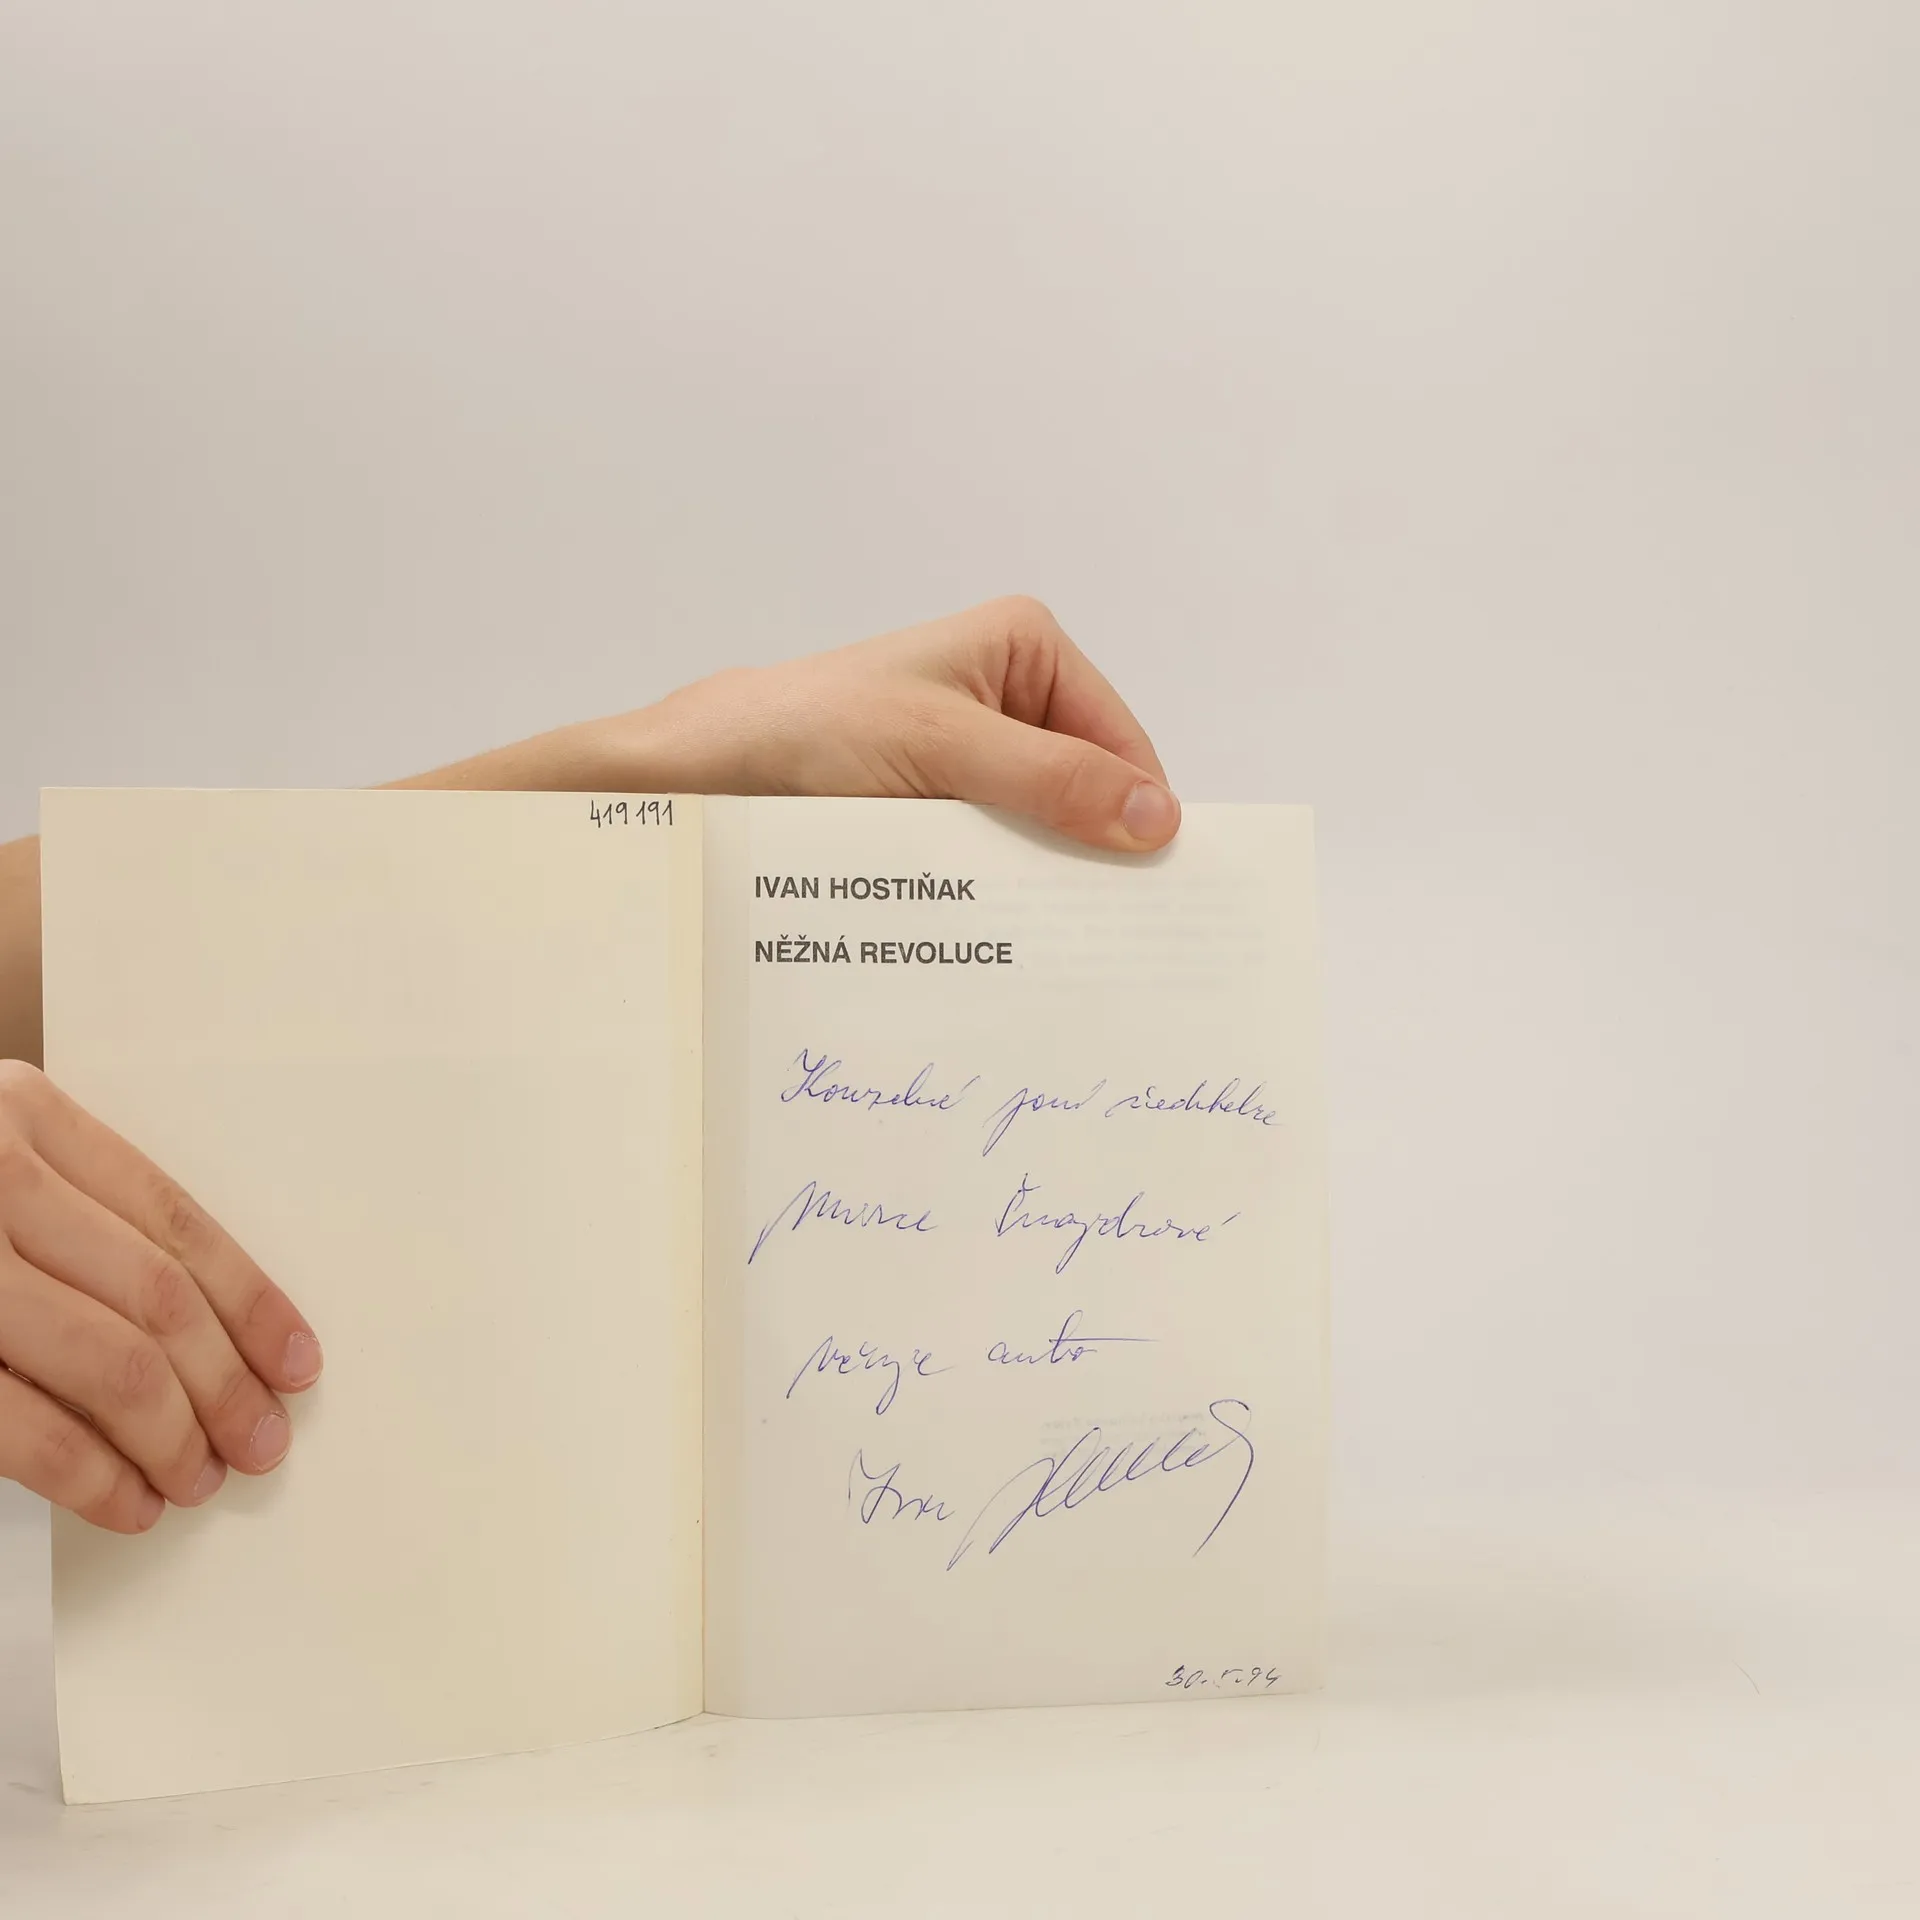 419 191
IVAN HOSTIŇAK
NĚŽNÁ REVOLUCE
Kouzelné paní ředitelce
Šnajdrové
věnuje autor
Ivan
30. 5. 94